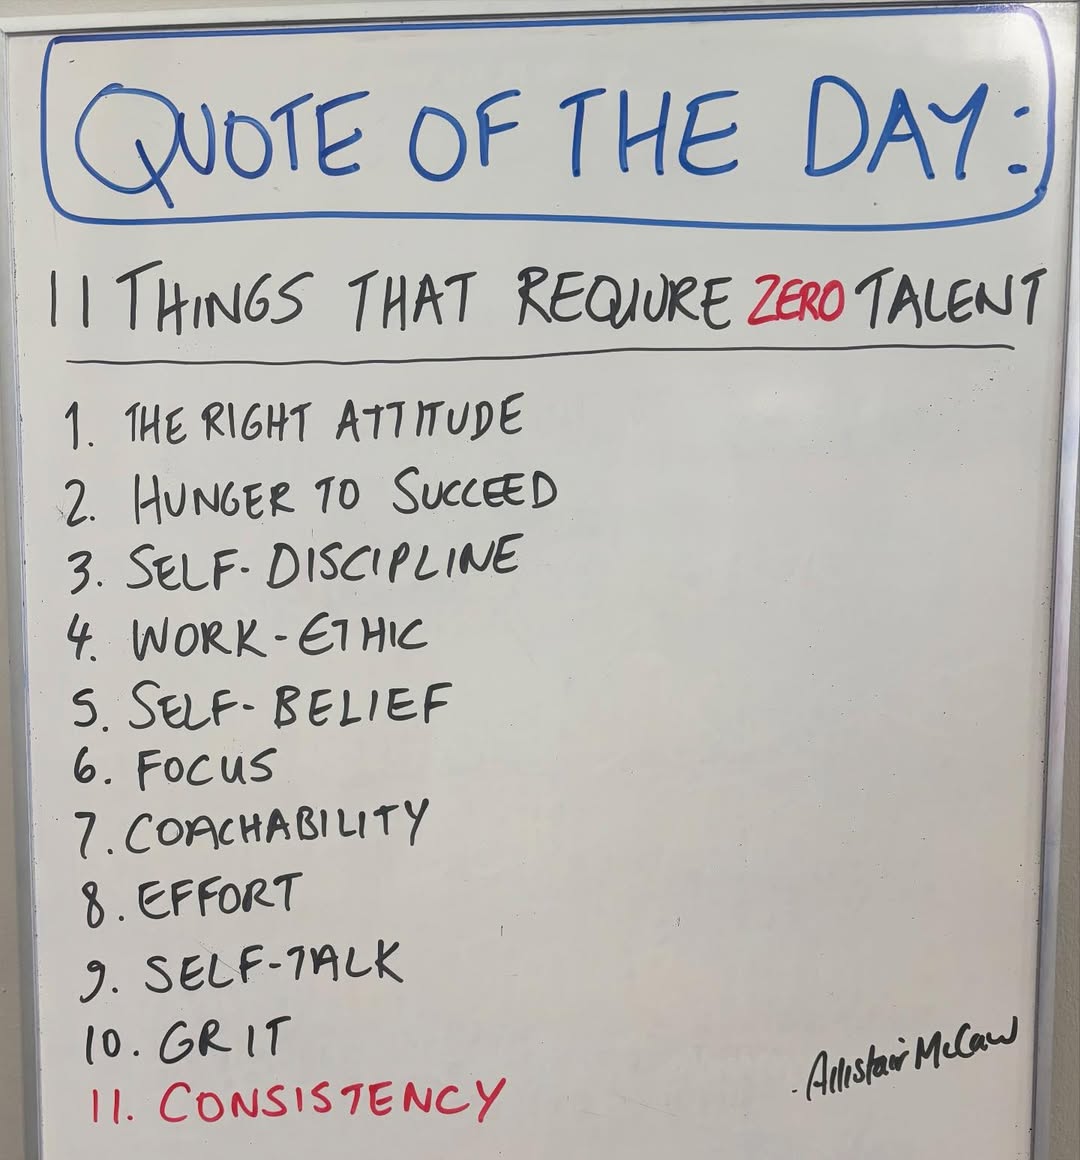 QUOTE OF THE DAY:
11 THINGS THAT REQIURE ZERO TALENT
1. THE RIGHT ATTITUDE
2. HUNGER TO SUCCEED
3. SELF-DISCIPLINE
4. WORK-ETHIC
5. SELF-BELIEF
6. FOCUS
7. COACHABILITY
8. EFFORT
9. SELF-TALK
10. GRIT
11. CONSISTENCY
- Allistair McCaw